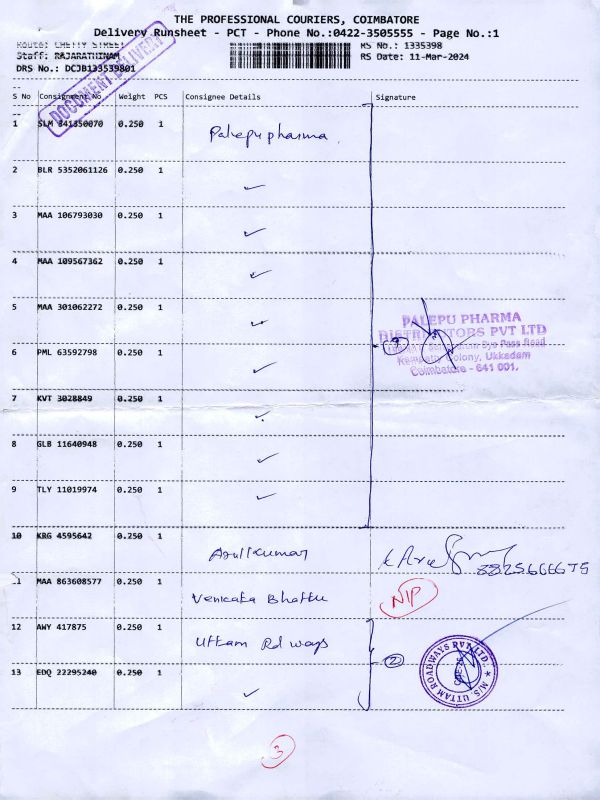 THE PROFESSIONAL COURIERS, COIMBATORE
Delivery Runsheet - PCT - Phone No.:0422-3505555 - Page No.:1
Route: CHETTY STREET
RS No.: 1335398
Staff: RAJARATHINAM
RS Date: 11-Mar-2024
DRS No.: DCJB133539801
DOCUMENT DELIVERY
S No Consignment No Weight PCS Consignee Details Signature
1 SLM 341350070 0.250 1 Palepu pharma
2 BLR 5352061126 0.250 1 ✓
3 MAA 106793030 0.250 1 ✓
4 MAA 109567362 0.250 1 ✓
5 MAA 301062272 0.250 1 ✓
PALEPU PHARMA
DISTRIBUTORS PVT LTD
Bye Pass Road
Colony, Ukkadam
Coimbatore - 641 001.
9
6 PML 63592798 0.250 1 ✓
7 KVT 3028849 0.250 1 ✓
8 GLB 11640948 0.250 1 ✓
9 TLY 11019974 0.250 1 ✓
10 KRG 4595642 0.250 1 Arulkumar
8825666675
11 MAA 863608577 0.250 1 Venkata Bhattu NIP
12 AWY 417875 0.250 1 Uttam Rd ways
2
M/S. UTTAM ROADWAYS PVT. LTD.
CBE-25
13 EDQ 22295240 0.250 1 ✓
3